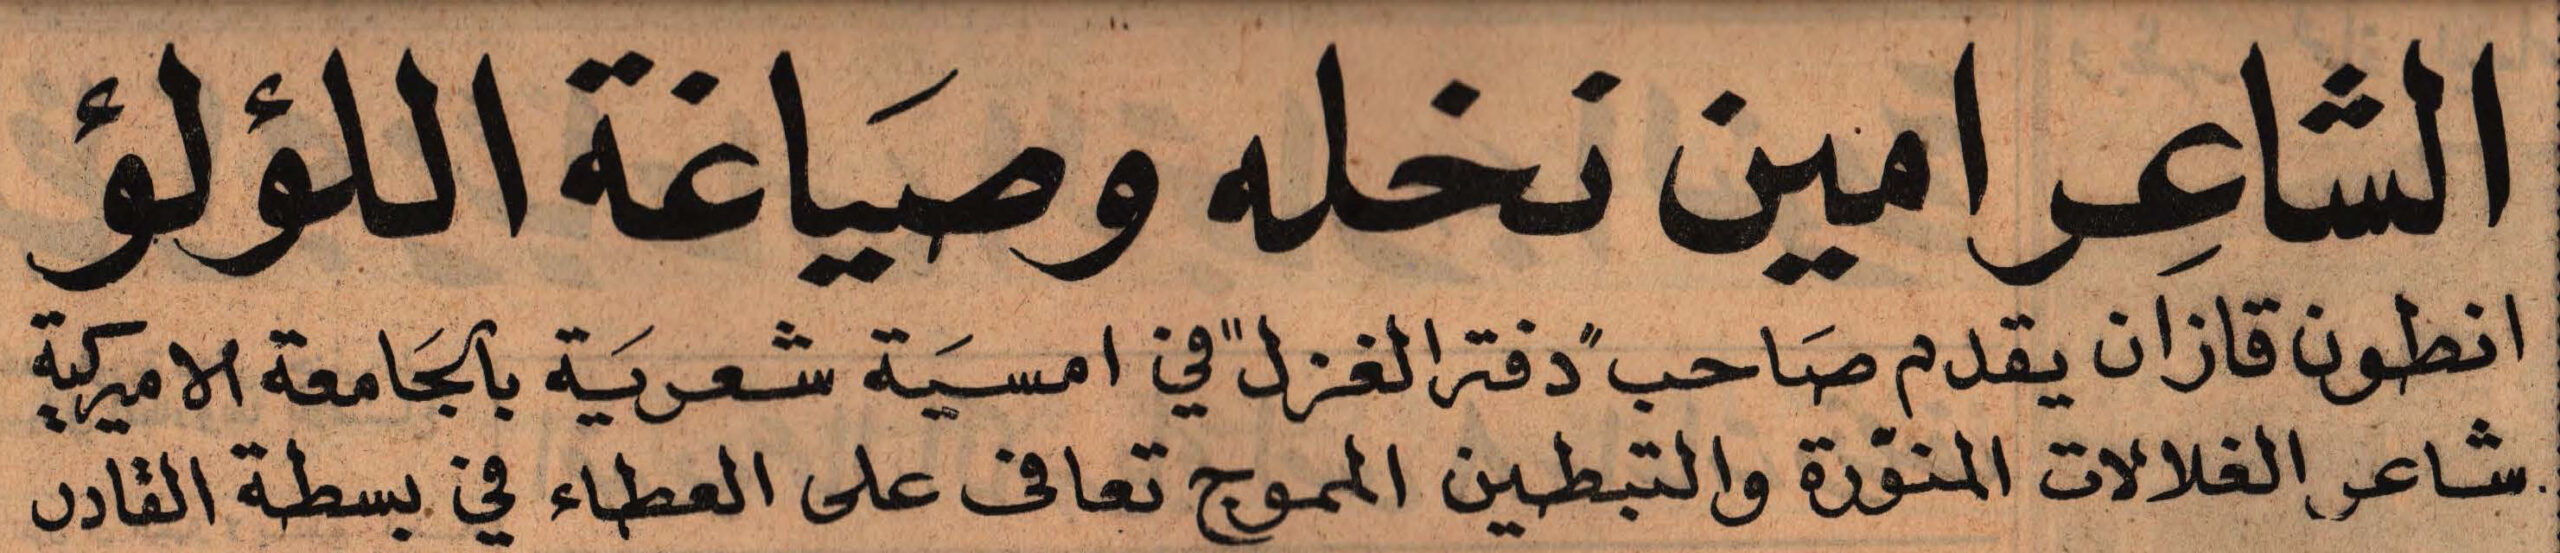 الشاعِر امين نخله وصَياغة اللؤلؤ
انطون قازان يقدم صَاحب "دفتر الغزل" في امسيَة شعريَة بالجَامعة الاميركية
شاعر الغلالات المنوّرة والتبطين المموج تعافى على العطاء في بسطة القادر